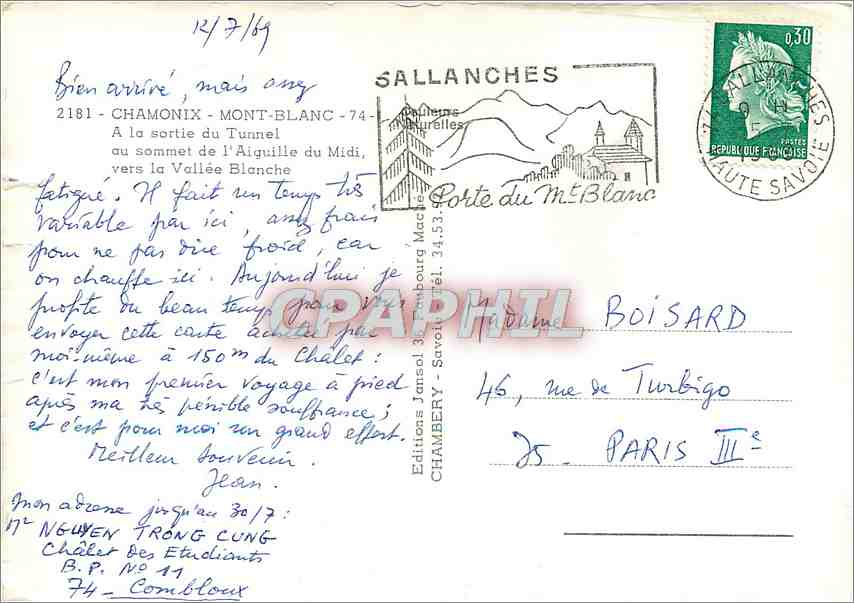 12/7/69
Bien arrivé, mais assez
2181 - CHAMONIX - MONT-BLANC - 74 -
A la sortie du Tunnel
au sommet de l'Aiguille du Midi,
vers la Vallée Blanche
fatigué. Il fait un temps très
variable par ici, assez frais
pour ne pas dire froid, car
on chauffe ici. Aujourd'hui je
profite du beau temps pour vous
envoyer cette carte achetée par
moi-même à 150m du Châlet :
c'est mon premier voyage à pied
après ma très pénible souffrance ;
et c'est pour moi un grand effort.
Meilleur souvenir.
Jean.
Mon adresse jusqu'au 30/7 :
NGUYEN TRONG CUNG
Châlet des Etudiants
B.P. No 11
74 - Combloux
Couleurs
Naturelles
Editions Jansol 3, Faubourg Maché
CHAMBERY - Savoie - Tél. 34.53.
SALLANCHES
Porte du Mt Blanc
0,30
POSTES
REPUBLIQUE FRANÇAISE
74 SALLANCHES
HAUTE SAVOIE
CPAPHIL
Madame BOISARD
46, rue de Turbigo
75 - PARIS IIIe